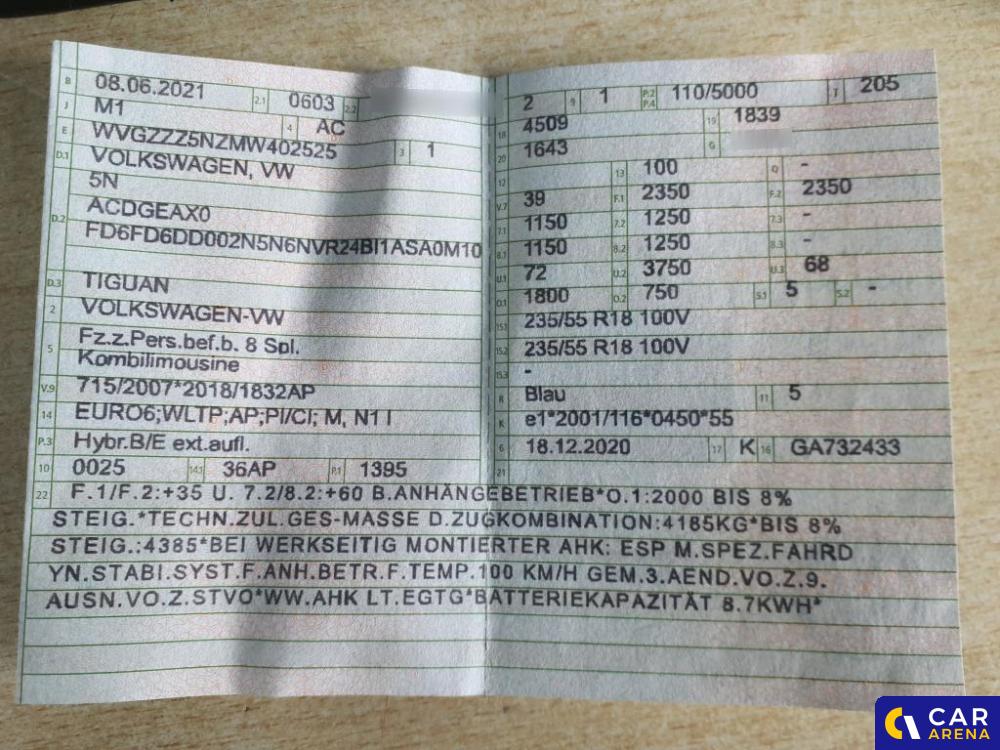 B 08.06.2021 2.1 0603 2.2
J M1 4 AC
E WVGZZZ5NZMW402525 3 1
D.1 VOLKSWAGEN, VW
5N
D.2 ACDGEAX0
FD6FD6DD002N5N6NVR24BI1ASA0M10
D.3 TIGUAN
2 VOLKSWAGEN-VW
5 Fz.z.Pers.bef.b. 8 Spl.
Kombilimousine
V.9 715/2007*2018/1832AP
14 EURO6;WLTP;AP;PI/CI; M, N1 I
P.3 Hybr.B/E ext.aufl.
10 0025 14.1 36AP P.1 1395
2 9 1 P.2 P.4 110/5000 T 205
18 4509 19 1839
20 1643 G
12 13 100 Q -
V.7 39 F.1 2350 F.2 2350
7.1 1150 7.2 1250 7.3 -
8.1 1150 8.2 1250 8.3 -
U.1 72 U.2 3750 U.3 68
O.1 1800 O.2 750 S.1 5 S.2 -
15.1 235/55 R18 100V
15.2 235/55 R18 100V
15.3 -
R Blau 11 5
K e1*2001/116*0450*55
6 18.12.2020 17 K 16 GA732433
21
22 F.1/F.2:+35 U. 7.2/8.2:+60 B.ANHÄNGEBETRIEB*O.1:2000 BIS 8%
STEIG.*TECHN.ZUL.GES-MASSE D.ZUGKOMBINATION:4185KG*BIS 8%
STEIG.:4385*BEI WERKSEITIG MONTIERTER AHK: ESP M.SPEZ.FAHRD
YN.STABI.SYST.F.ANH.BETR.F.TEMP.100 KM/H GEM.3.AEND.VO.Z.9.
AUSN.VO.Z.STVO*WW.AHK LT.EGTG*BATTERIEKAPAZITÄT 8.7KWH*
CAR
ARENA